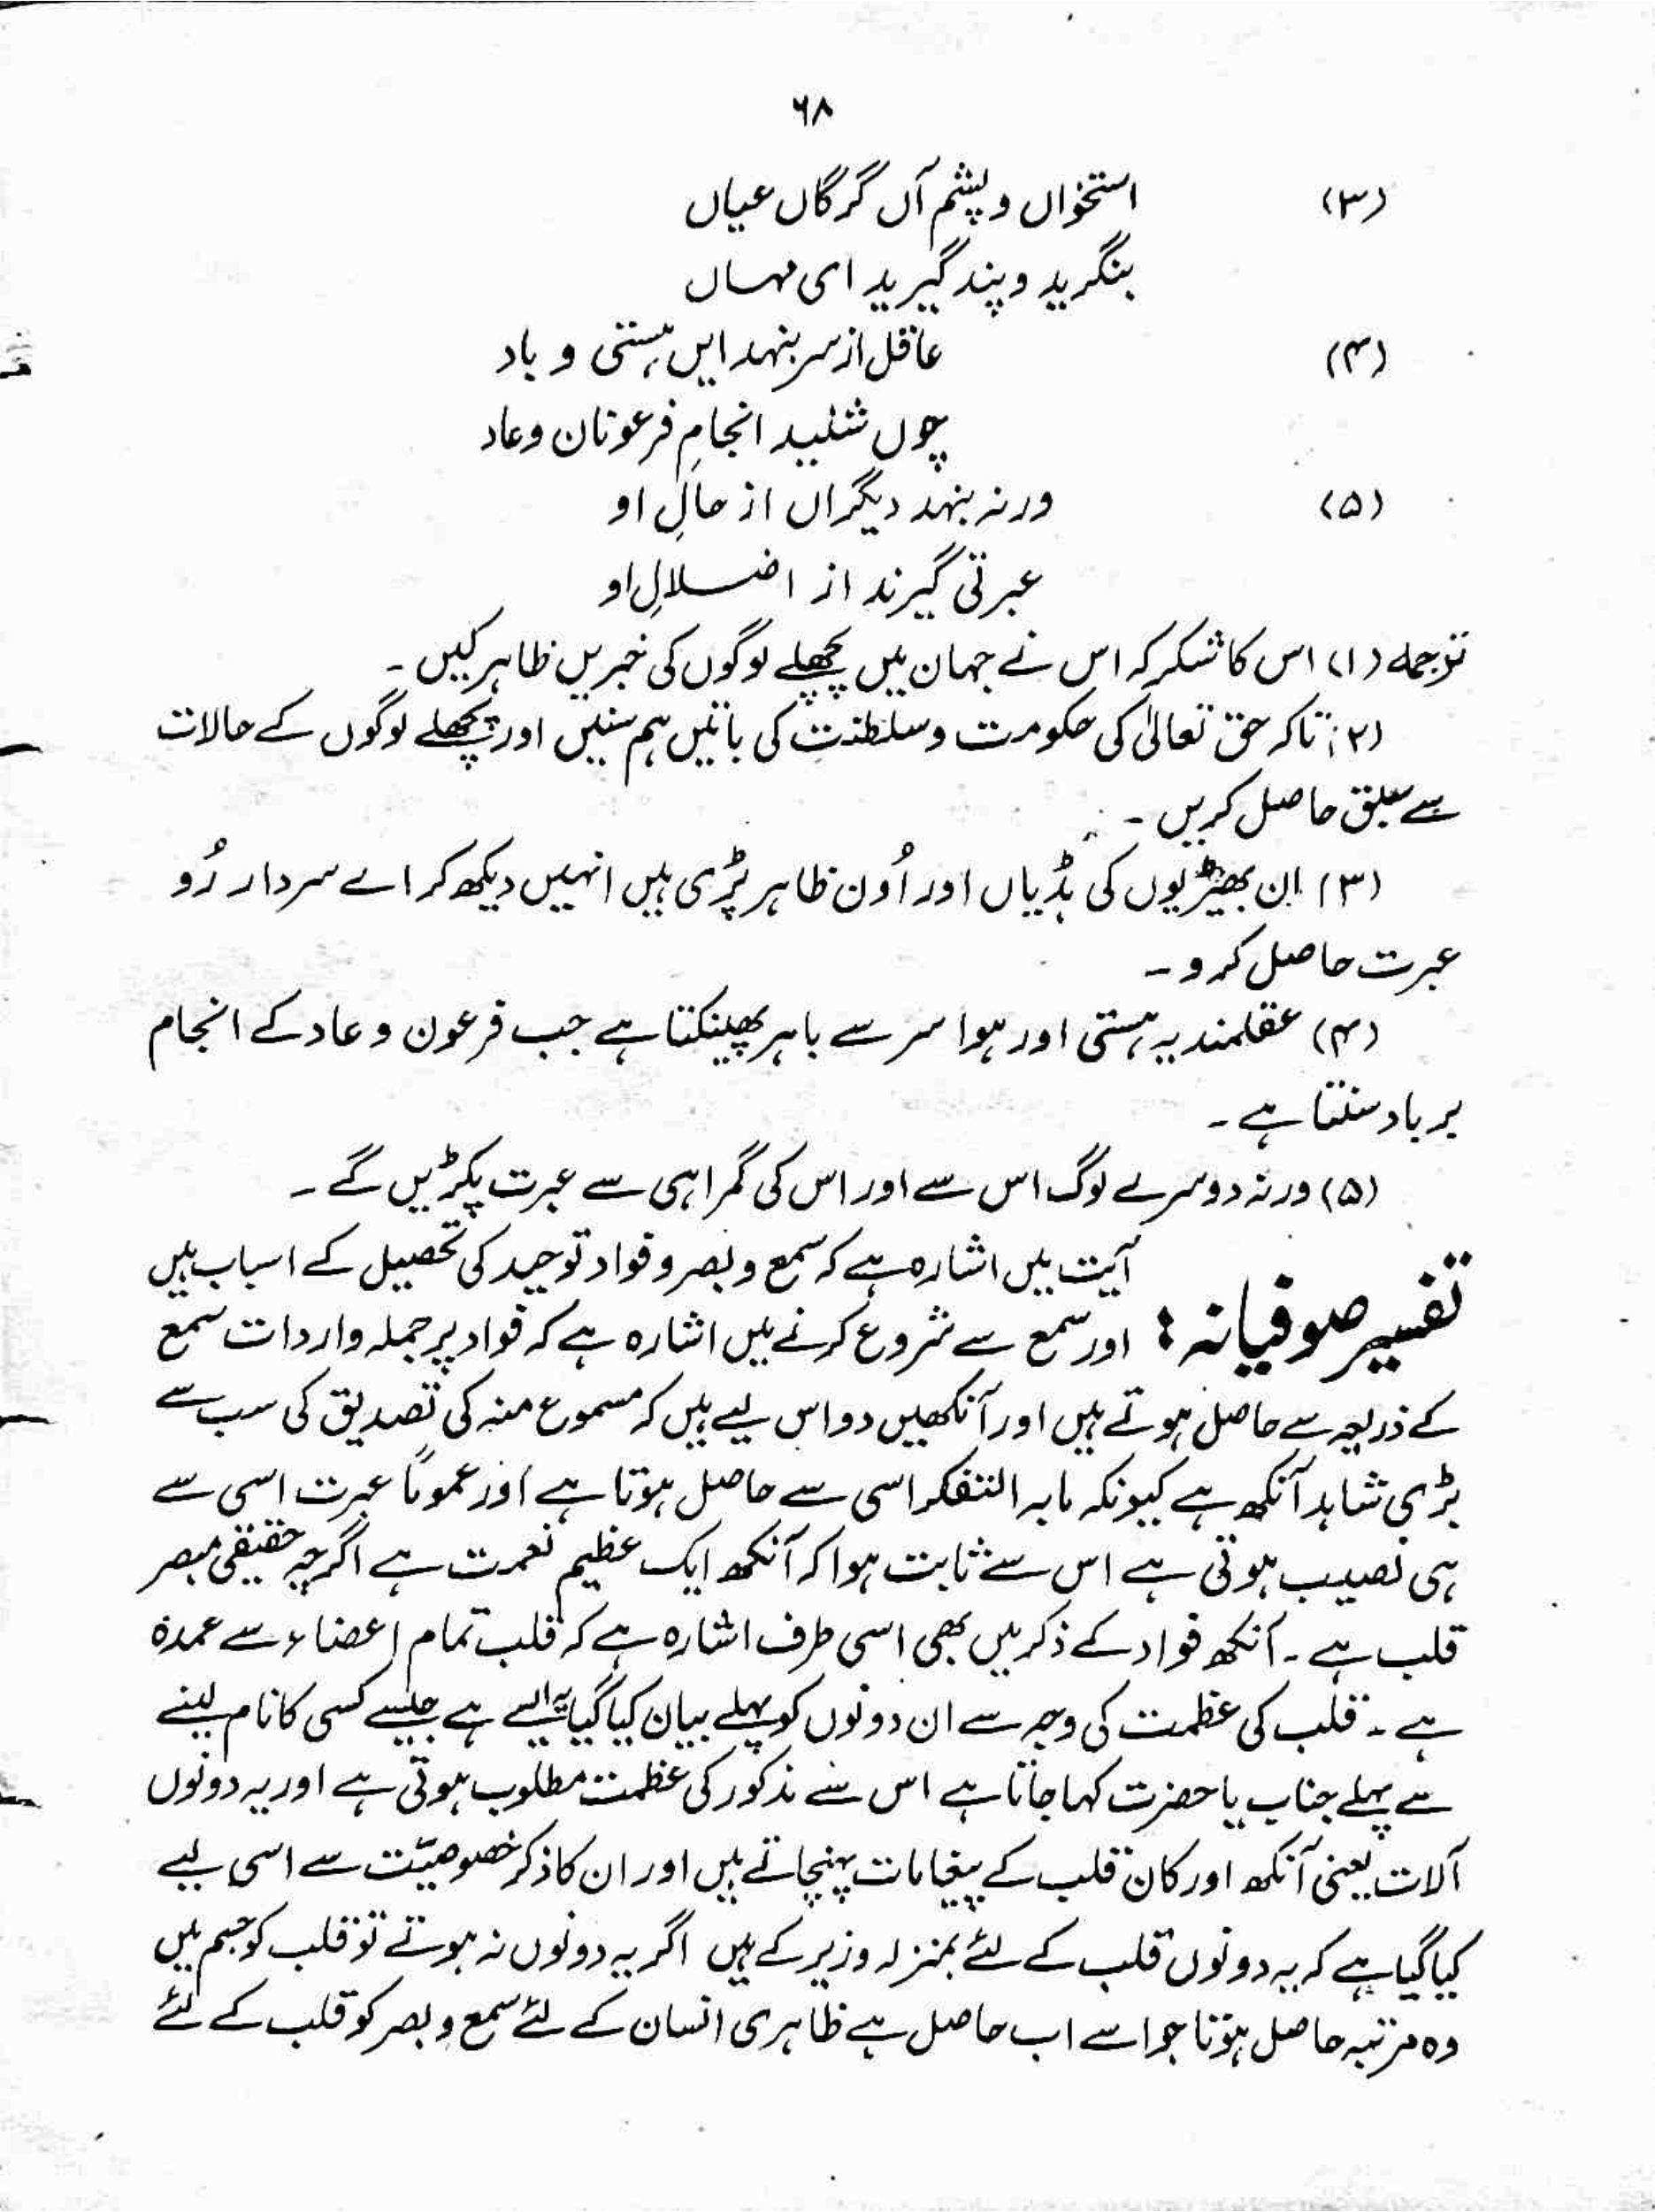 ۶۸
(۳) استخواں و پشم آں گرگاں عیاں
بنگرید و پند گیرید ای مہاں
(۴) عاقل از سر بنہد ایں ہستی و باد
چوں شنید انجامِ فرعونان و عاد
(۵) ورنہ بنہد دیگراں از حالِ او
عبرتی گیرند از اضلالِ او
ترجمہ (۱) اس کا شکر کہ اس نے جہان میں پچھلے لوگوں کی خبریں ظاہر کیں ۔
(۲) تاکہ حق تعالیٰ کی حکومت و سلطنت کی باتیں ہم سنیں اور پچھلے لوگوں کے حالات
سے سبق حاصل کریں ۔
(۳) ان بھیڑیوں کی ہڈیاں اور اُون ظاہر پڑی ہیں انہیں دیکھ کر اے سردار رُو
عبرت حاصل کرو ۔
(۴) عقلمند یہ ہستی اور ہوا سر سے باہر پھینکتا ہے جب فرعون و عاد کے انجام
برباد سنتا ہے ۔
(۵) ورنہ دوسرے لوگ اس سے اور اس کی گمراہی سے عبرت پکڑیں گے ۔
تفسیر صوفیانہ : آیت میں اشارہ ہے کہ سمع و بصر و فواد توحید کی تحصیل کے اسباب ہیں
اور سمع سے شروع کرنے میں اشارہ ہے کہ فواد پر جملہ واردات سمع
کے ذریعہ سے حاصل ہوتے ہیں اور آنکھیں دو اس لیے ہیں کہ مسموع منہ کی تصدیق کی سب سے
بڑی شاہد آنکھ ہے کیونکہ مابہ التفکر اسی سے حاصل ہوتا ہے اور عموماً عبرت اسی سے
ہی نصیب ہوتی ہے اس سے ثابت ہوا کہ آنکھ ایک عظیم نعمت ہے اگرچہ حقیقی مبصر
قلب ہے ۔ آنکھ فواد کے ذکر میں بھی اسی طرف اشارہ ہے کہ قلب تمام اعضاء سے عمدہ
ہے ۔ قلب کی عظمت کی وجہ سے ان دونوں کو پہلے بیان کیا گیا یہ ایسے ہے جیسے کسی کا نام لینے
سے پہلے جناب یا حضرت کہا جاتا ہے اس سے مذکور کی عظمت مطلوب ہوتی ہے اور یہ دونوں
آلات یعنی آنکھ اور کان قلب کے پیغامات پہنچاتے ہیں اور ان کا ذکر خصوصیّت سے اسی لیے
کیا گیا ہے کہ یہ دونوں قلب کے لئے بمنزلہ وزیر کے ہیں اگر یہ دونوں نہ ہوتے تو قلب کو جسم میں
وہ مرتبہ حاصل ہوتا جو اسے اب حاصل ہے ظاہری انسان کے لئے سمع و بصر کو قلب کے لئے